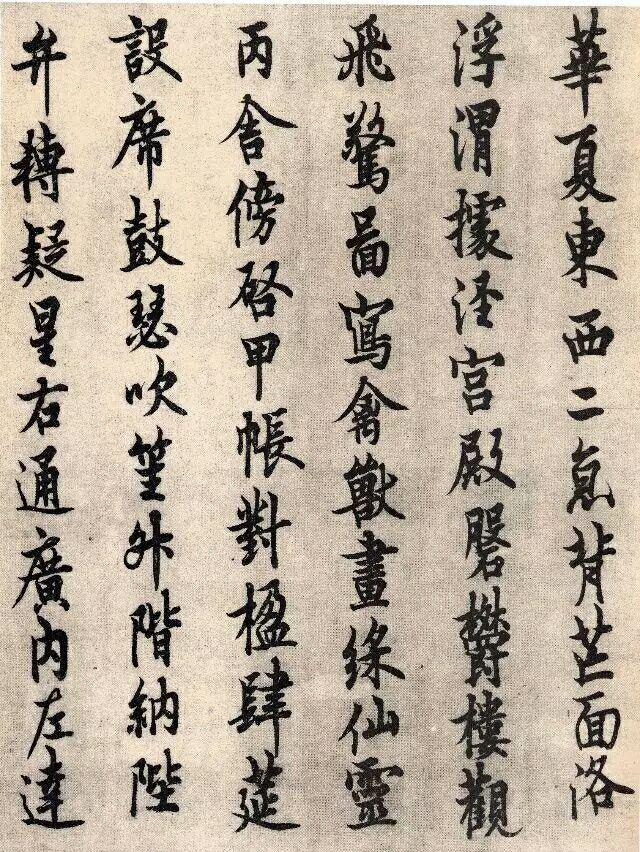 華夏東西二京背芒面洛
浮渭據涇宮殿磐鬱樓觀
飛驚啚寫禽獸畫綵仙靈
丙舍傍啓甲帳對楹肆莚
設席鼓瑟吹笙升階納陛
弁轉疑星右通廣內左達